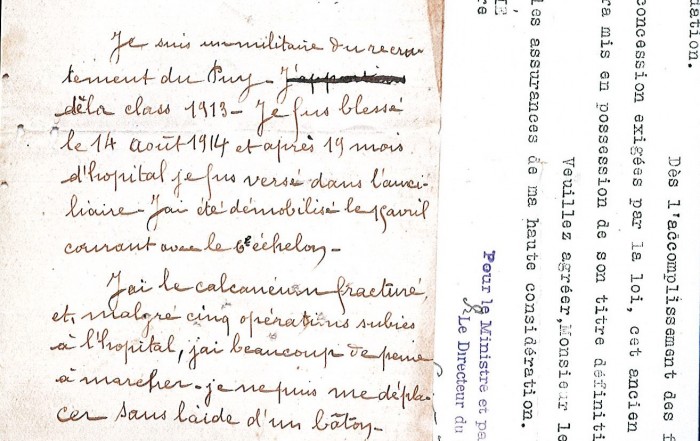 Je suis un militaire du recru-
tement du Puy - J'appartiens
dèla class 1913 - Je fus blessé
le 14 Août 1914 et après 19 mois
d'hopital je fus versé dans l'auxi-
liaire - J'ai été démobilisé le 15 avril
courant avec le 6e échelon -
J'ai le calcanéum fracturé,
et, malgré cinq opérations subies
à l'hopital, j'ai beaucoup de peine
à marcher - je ne puis me dépla-
cer sans l'aide d'un bâton -
dation.
Dès l'accomplissement des f
concession exigées par la loi, cet ancien
ra mis en possession de son titre définiti
Veuillez agréer, Monsieur le
les assurances de ma haute considération.
Pour le Ministre et pa
Le Directeur du